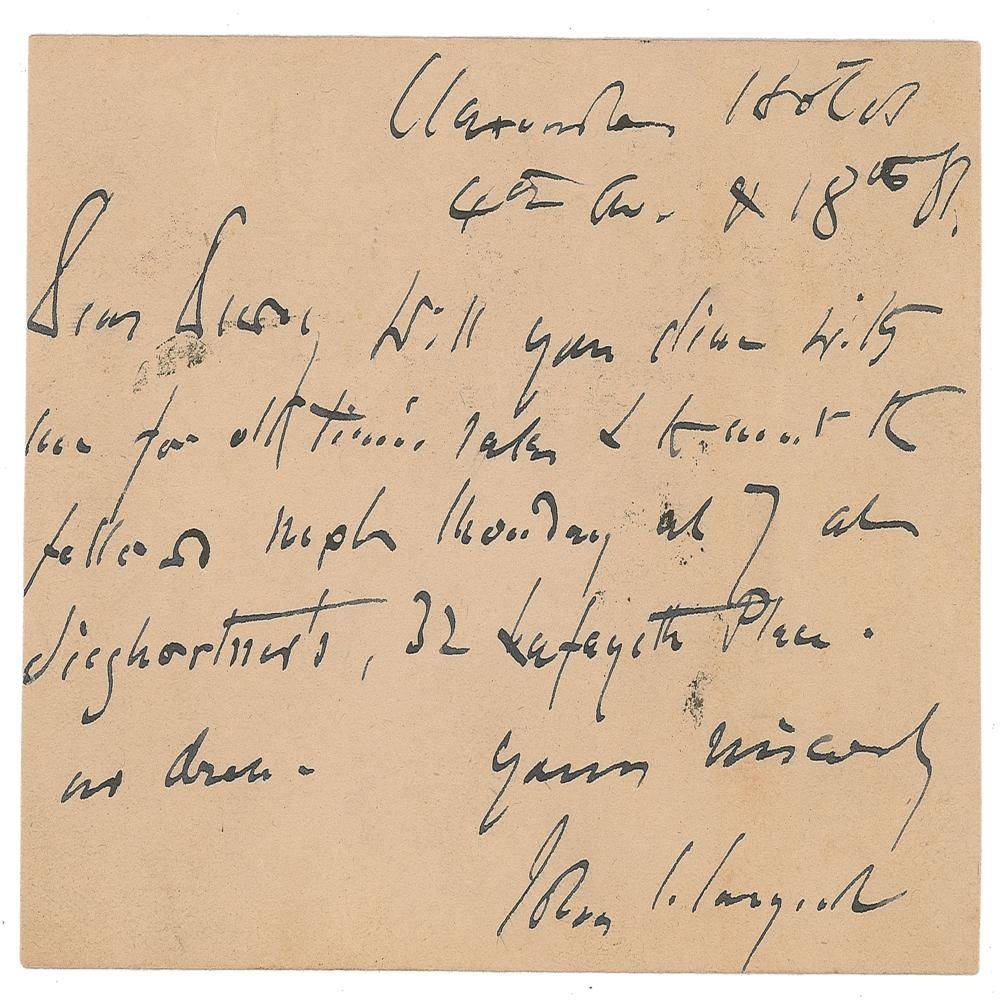 Clarendon Hotel
4th Av. & 18th St.
Dear Will you dine with
me for old time's sake & to meet the
fellows next Monday at 7 at
Sieghortner's, 32 Lafayette Place.
no dress. Yours sincerely
John S. Sargent